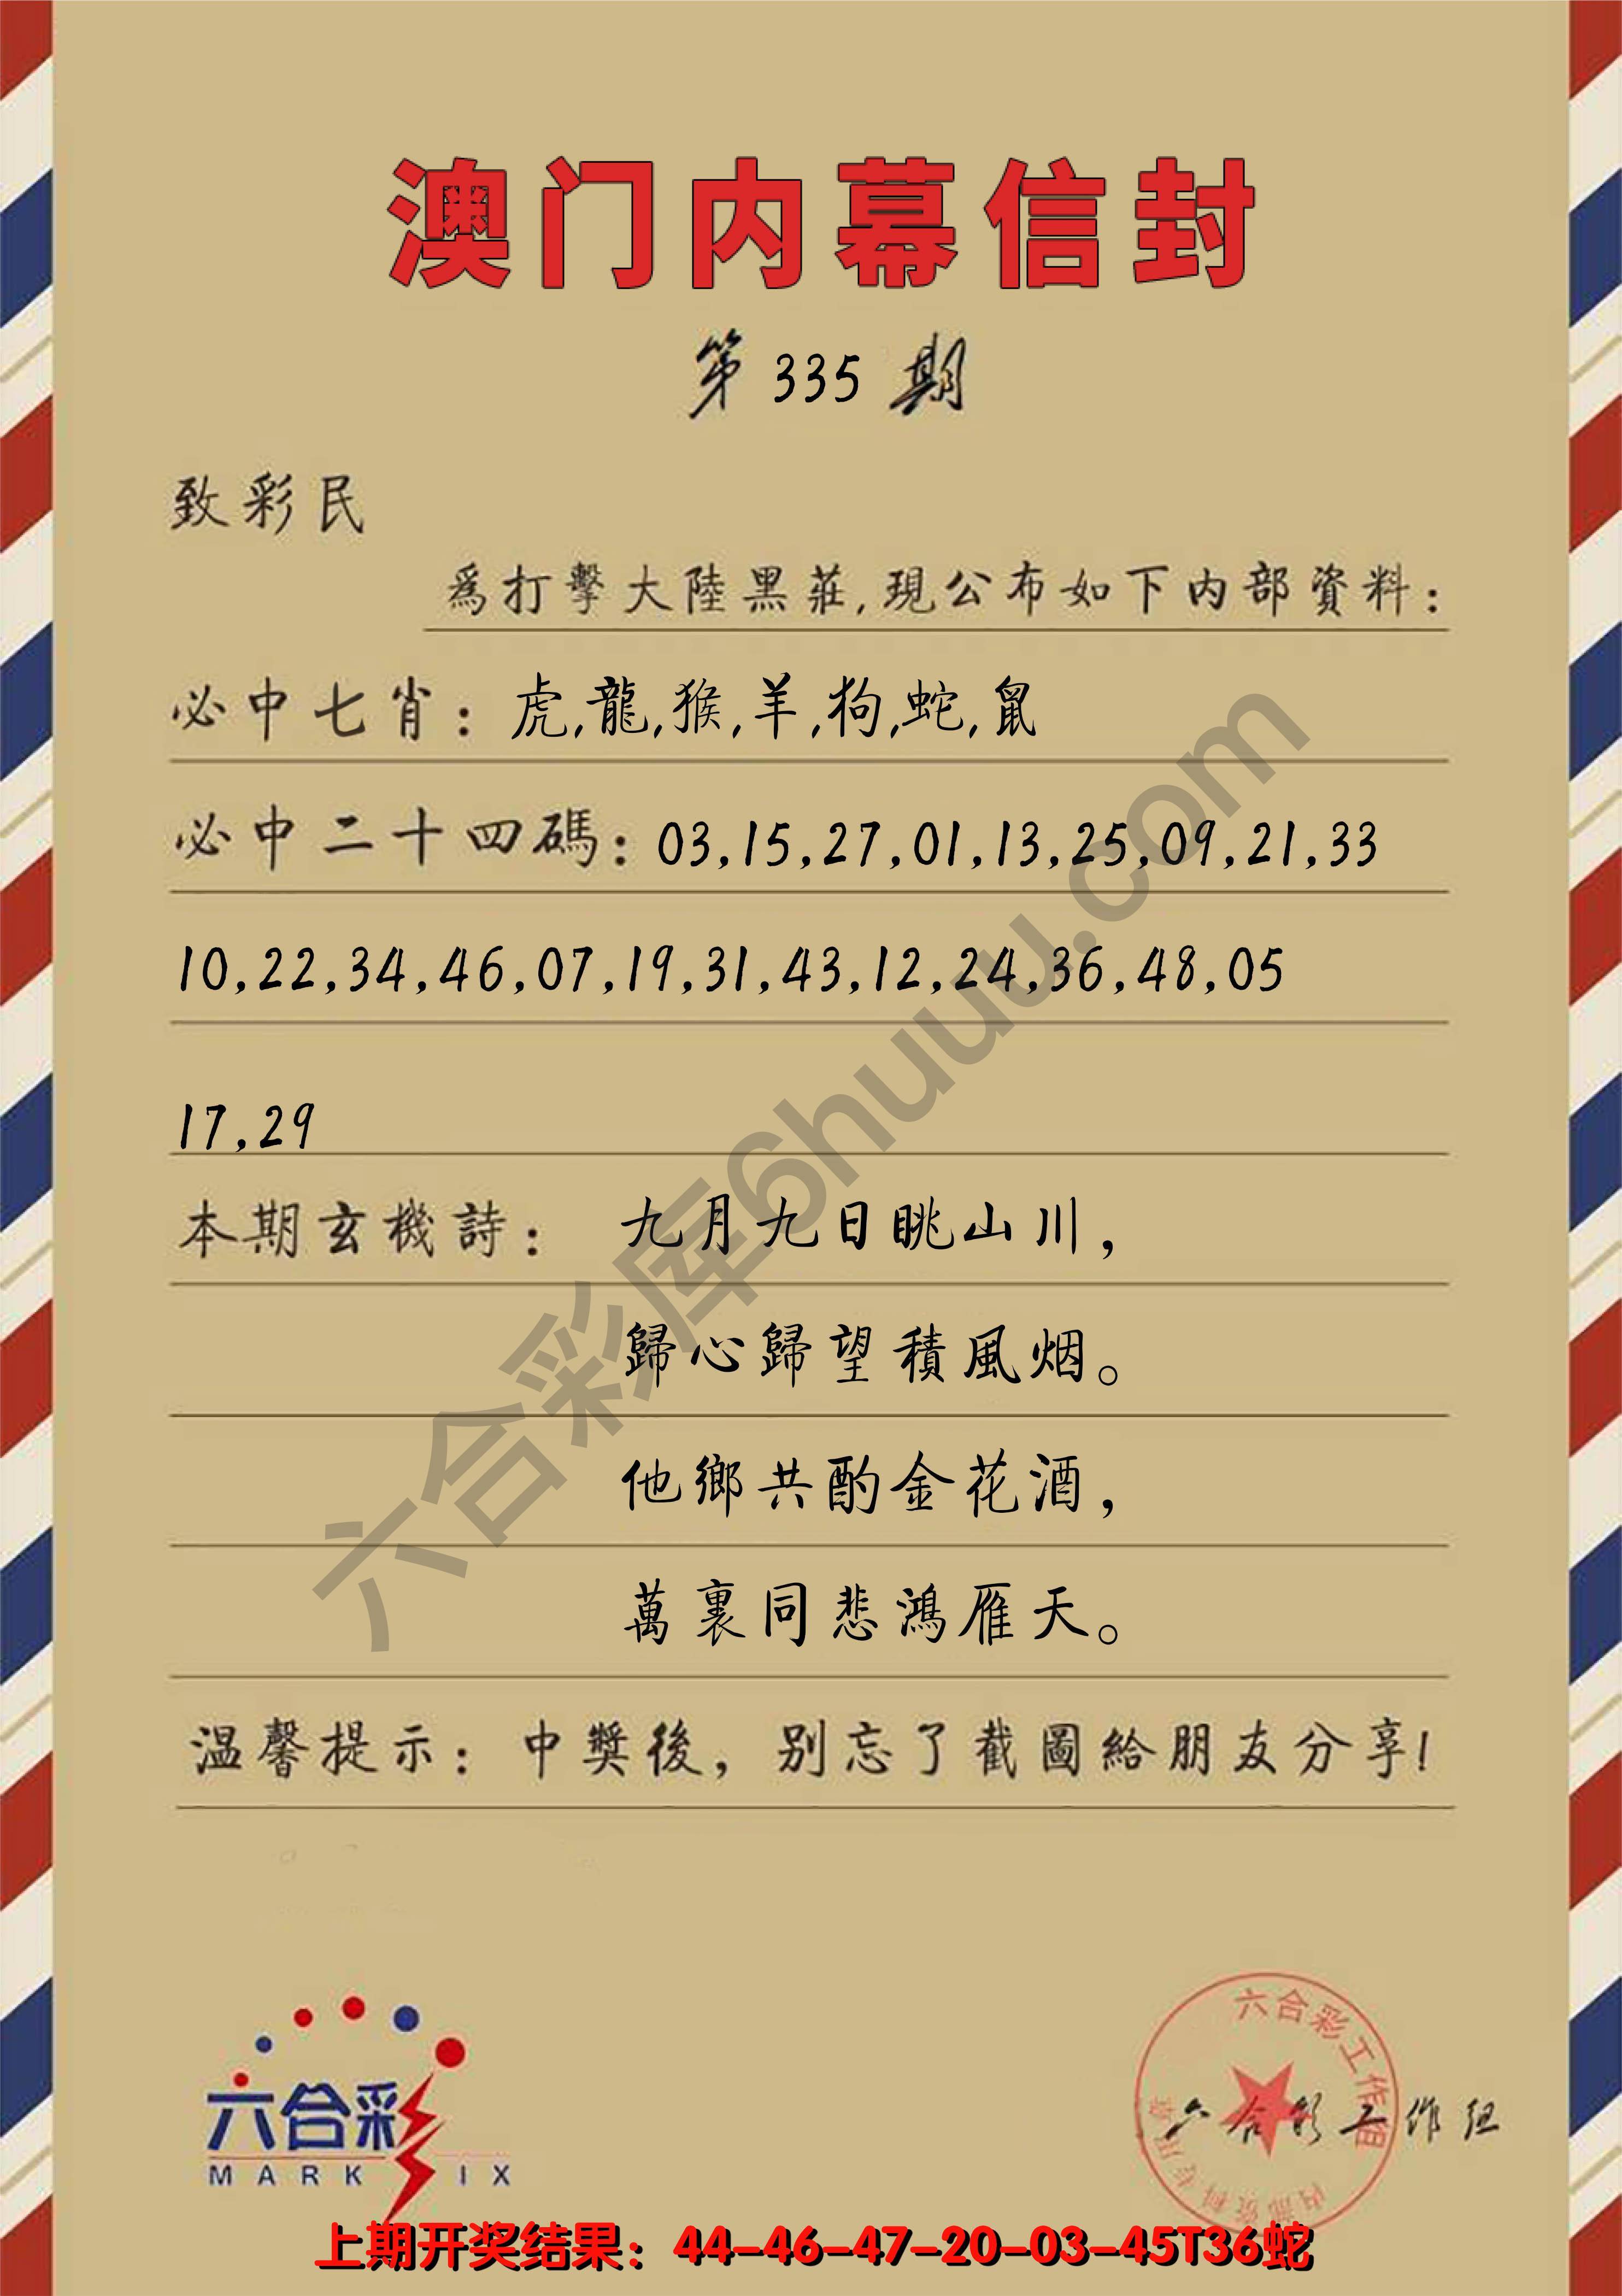 澳门内幕信封
第 335 期
致彩民
爲打擊大陸黑莊,現公布如下内部資料:
必中七肖: 虎,龍,猴,羊,狗,蛇,鼠
必中二十四碼: 03,15,27,01,13,25,09,21,33
10,22,34,46,07,19,31,43,12,24,36,48,05
17,29
本期玄機詩: 九月九日眺山川,
歸心歸望積風烟。
他鄉共酌金花酒,
萬裏同悲鴻雁天。
温馨提示: 中獎後, 别忘了截圖給朋友分享!
六合彩库6huuu.com
六合彩
MARK SIX
六合彩工作组
内部资料专用章
六合彩工作组
上期开奖结果: 44-46-47-20-03-45T36蛇